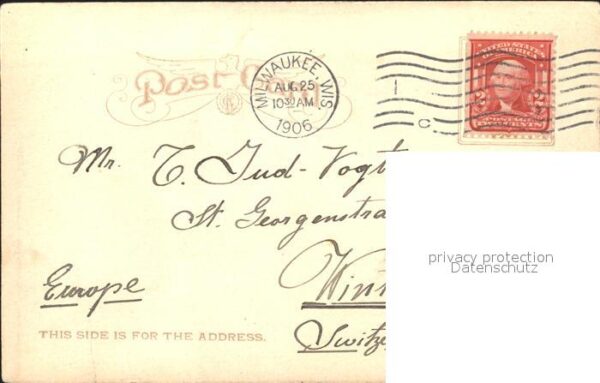 Post Card
MILWAUKEE, WIS
AUG 25
10 30 AM
1906
C
UNITED STATES
OF AMERICA
Mr. T. Gud-Vogt
St. Georgenstra
Europe
Wint
Switze
THIS SIDE IS FOR THE ADDRESS.
privacy protection
Datenschutz